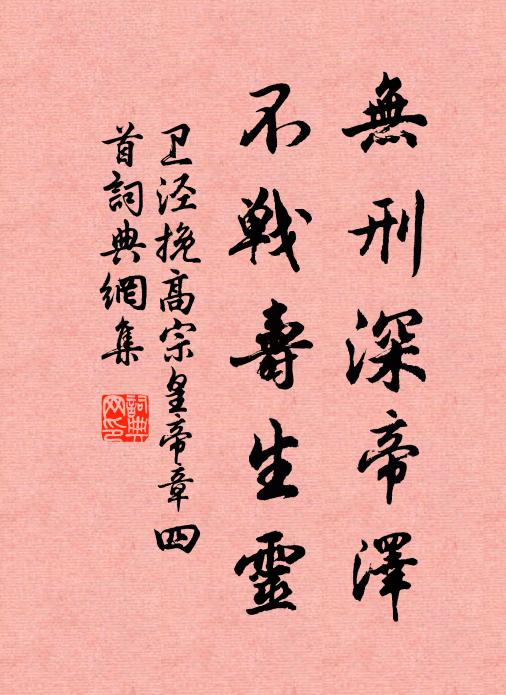 無刑深帝澤
不戰壽生靈
卫涇挽高宗皇帝章四
首詞典網集
詞典
网印